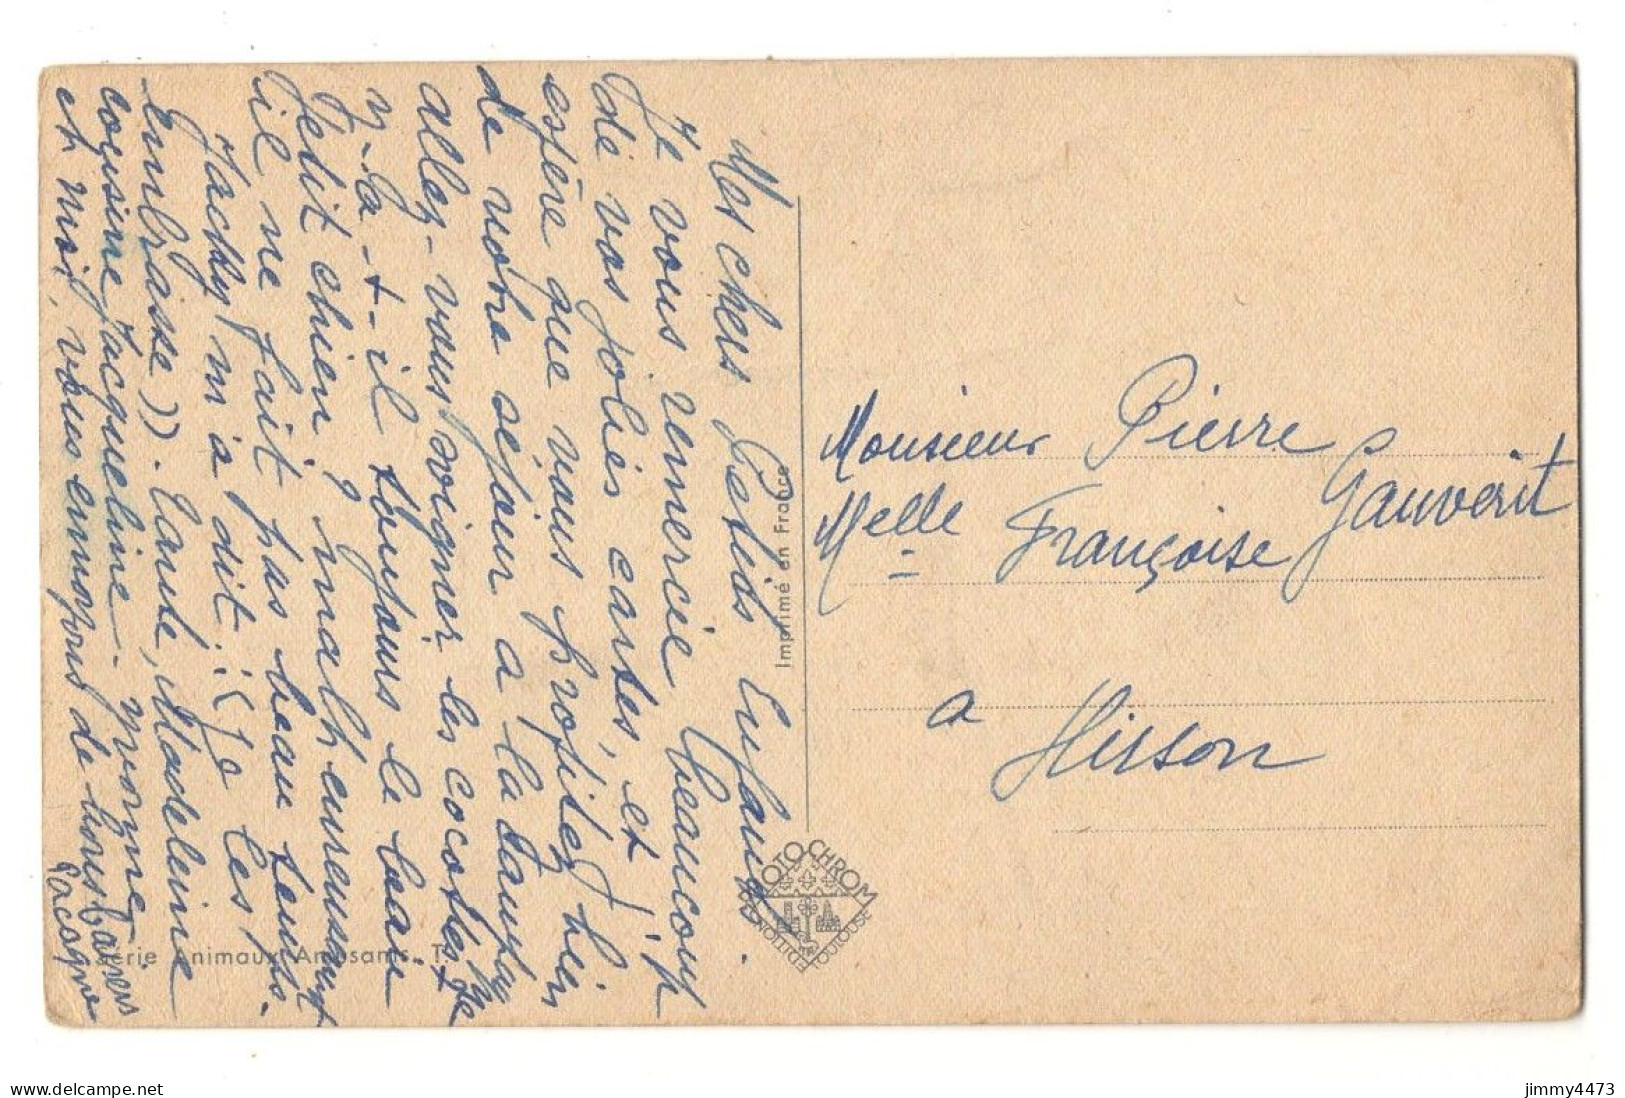 Mes chers Petits Enfants.
Je vous remercie beaucoup
de vos jolies cartes, et j'
espère que vous profitez bien
de votre séjour à la
allez-vous soigner les cocottes
y-a-t-il toujours le beau
petit chien, malheureusement
il ne fait pas beau temps.
Jacky m'a dit : (Je les
embrasse)). Tante, Madeleine
cousine Jacqueline.
et moi, vous envoyons de bons baisers
Monsieur Pierre
Melle Françoise Gauverit
a Hirson
Imprimé en France
Série Animaux Amusants. T.
FOTOCHROM
EDITIONS
TOULOUSE
delcampe.net
jimmy4473